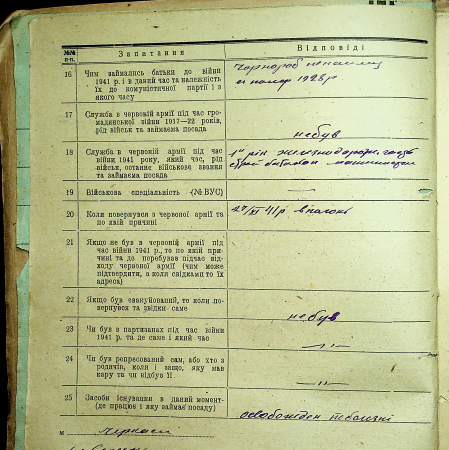 №№ п-п.
Запитання
Відповіді
16
Чим займались батьки до війни
1941 р. і в даний час та належність
їх до комуністичної партії і з
якого часу
помер 1928 р
17
Служба в червоній армії під час гро-
мадянської війни 1917—22 років,
рід військ та займаєма посада
не був
18
Служба в червоній армії під час
війни 1941 року, який чэс, рід
військ, останнє військове звання
та займаєма посада
19
Військова спеціальність (№ ВУС)
—
20
Коли повернувся з червоної армії та
по якій причині
27/XI 41 р.
21
Якщо не був в червоній армії під
час війни 1941 р., то по якій при-
чині та де перебував підчас від-
ходу червоної армії (чим може
підтвердити, а коли свідками то їх
адреса)
22
Якщо був евакуйований, то коли по-
вернувся та звідки саме
не був
23
Чи був в партизанах під час війни
1941 р. та де саме і який час
—„—
24
Чи був репресований сам, або хто з
родичів, коли і защо, яку мав
кару та чи відбув її
—„—
25
Засоби існування в даний момент-
(де працює і яку займає посаду)
м Черкаси